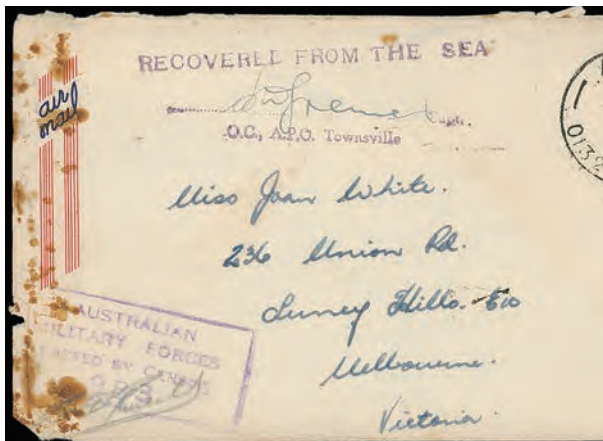 RECOVERED FROM THE SEA
air
mail
Capt.
O.C., A.P.O. Townsville
Miss Joan White.
236 Union Rd.
Surrey Hills. E10
Melbourne.
Victoria.
AUSTRALIAN
MILITARY FORCES
PASSED BY CENSOR